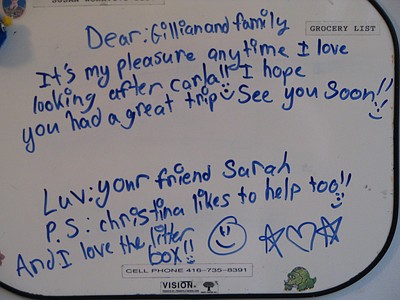 Dear: Gillian and family
GROCERY LIST
It's my pleasure anytime I love
looking after carla!! I hope
you had a great trip See you soon!!
Luv: your friend Sarah
P.S: christina likes to help too!!
And I love the litter
box!!
CELL PHONE 416-735-8391
VISION